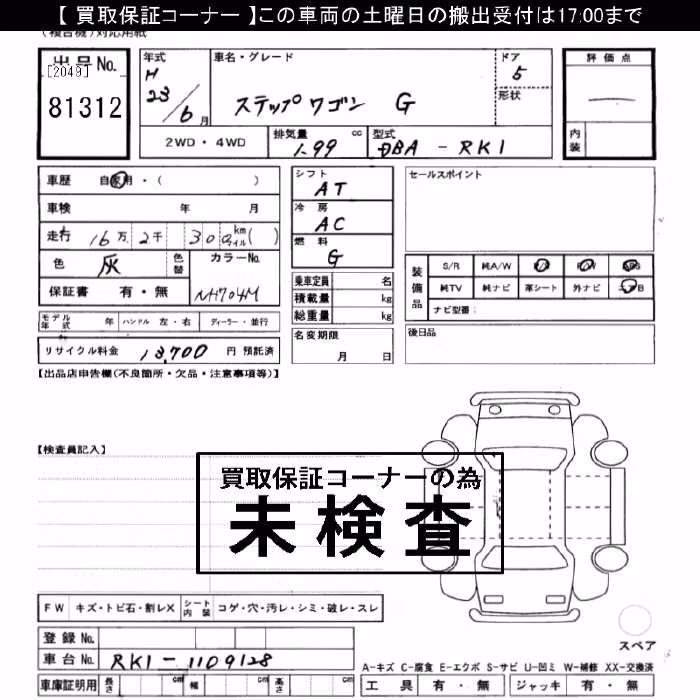 【 買取保証コーナー 】この車両の土曜日の搬出受付は17:00まで
(複合機)対応用紙
出品No.
[2049]
81312
年式
H
23/6月
車名・グレード
ステップワゴン G
ドア
5
形状
評価点
内装
2WD・4WD
排気量
1.99 cc
型式
DBA - RK1
車歴 自家用・( )
車検 年 月
走行 16万 2千 300 km マイル( )
色 灰
色替
カラーNo.
NH704M
保証書 有・無
シフト
AT
冷房
AC
燃料
G
乗車定員 名
積載量 kg
総重量 kg
セールスポイント
装備品
S/R 純A/W P/S P/W ABS
純TV 純ナビ 革シート 外ナビ エアB
ナビ型番:
モデル年式 年 ハンドル 左・右 ディーラー・並行
リサイクル料金 13,700 円 預託済
名変期限
月 日
後日品
【出品店申告欄(不良箇所・欠品・注意事項等)】
【検査員記入】
買取保証コーナーの為
未検査
FW キズ・トビ石・割レX シート内装 コゲ・穴・汚レ・シミ・破レ・スレ
登録No.
車台No. RK1-1109128
車庫証明用 長さ cm 幅 cm 高さ cm
スペア
A-キズ C-腐食 E-エクボ S-サビ U-凹ミ W-補修 XX-交換済
工具 有・無 ジャッキ 有・無